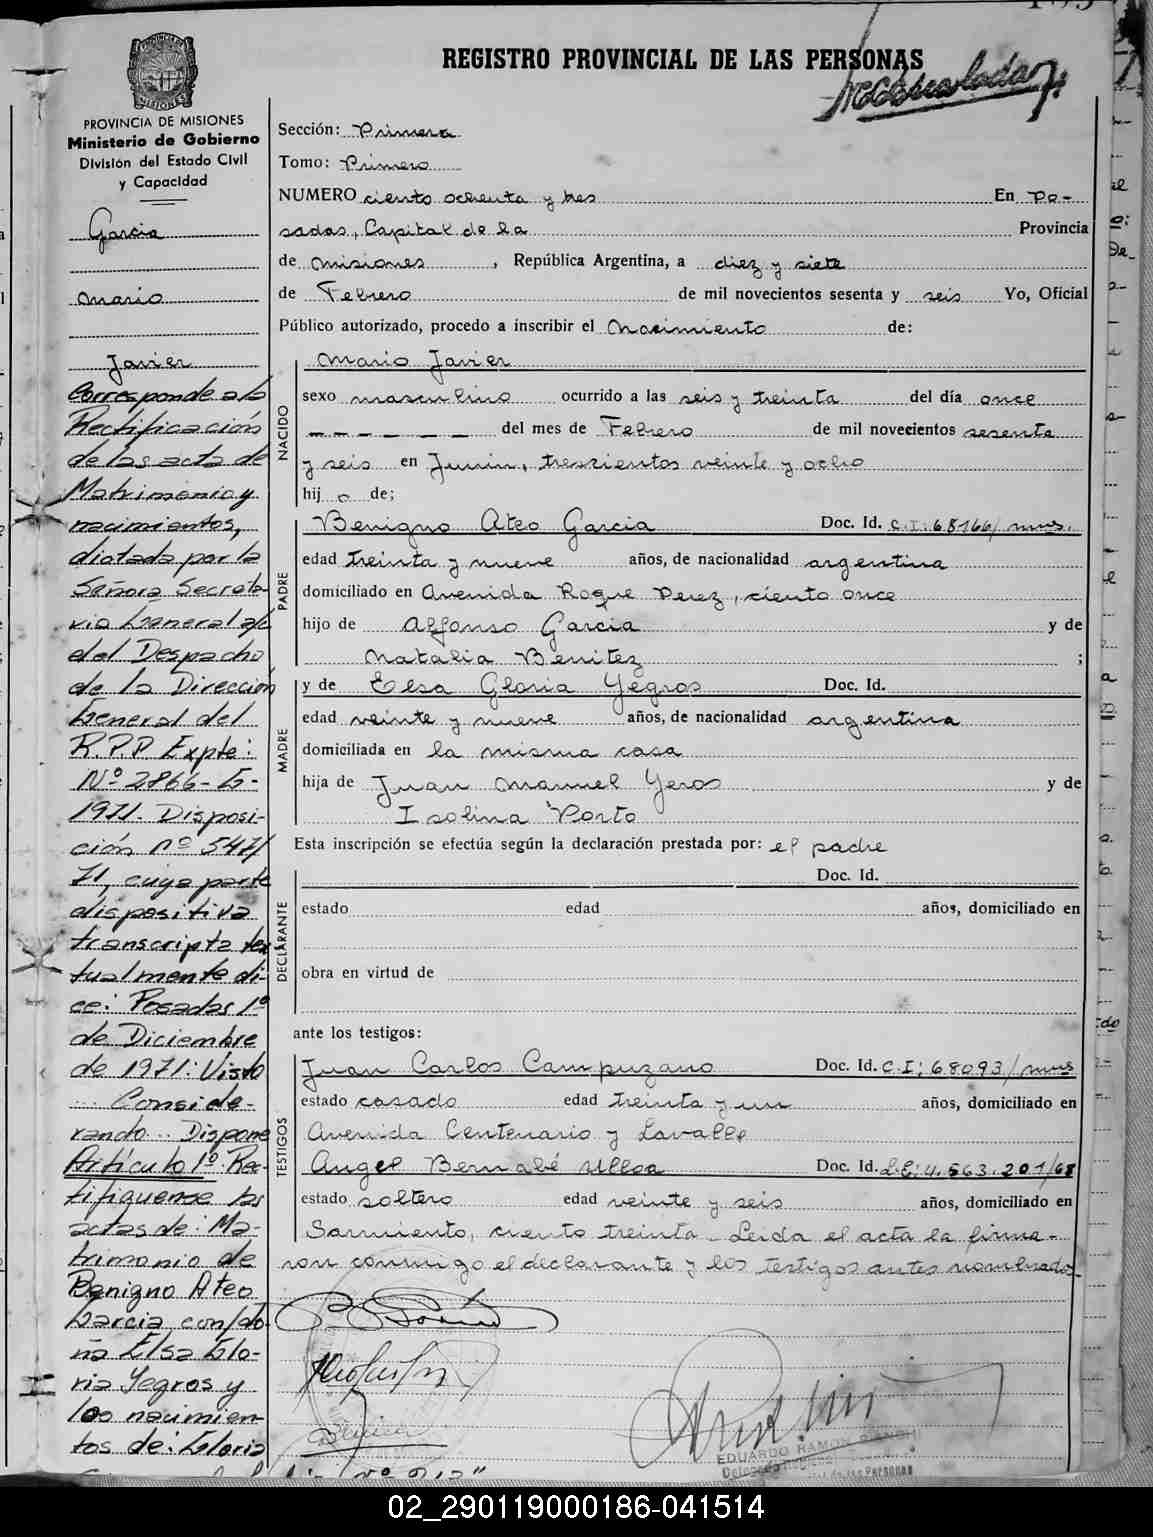 REGISTRO PROVINCIAL DE LAS PERSONAS
PROVINCIA DE MISIONES
Ministerio de Gobierno
División del Estado Civil
y Capacidad
Garcia
Mario
Javier
Corresponde a la
Rectificación
de las acta de
Matrimonio y
nacimientos,
dictada por la
Señora Secreta-
ria General a/c
del Despacho
de la Dirección
General del
R.P.P Expte:
Nº 2866-G-
1971. Disposi-
ción nº 547/
71, cuya parte
dispositiva
transcripta tex
tualmente di-
ce: Posadas 1º
de Diciembre
de 1971: Visto
... Conside-
rando... Dispone
Artículo 1º: Rec-
tifiquense las
actas de: Ma-
trimonio de
Benigno Ateo
Garcia con do-
ña Elsa Glo-
ria Yegros y
los nacimien-
tos de: Gloria
Sección: Primera
Tomo: Primero
NUMERO ciento ochenta y tres En Po-
sadas, Capital de la Provincia
de Misiones, República Argentina, a diez y siete
de Febrero de mil novecientos sesenta y seis Yo, Oficial
Público autorizado, procedo a inscribir el Nacimiento de:
NACIDO
Mario Javier
sexo masculino ocurrido a las seis y treinta del día once
del mes de Febrero de mil novecientos sesenta
y seis en Junin, trescientos veinte y ocho
hij o de;
PADRE
Benigno Ateo Garcia Doc. Id. C.I: 68166/mns.
edad treinta y nueve años, de nacionalidad argentina
domiciliado en Avenida Roque Perez, ciento once
hijo de Alfonso Garcia y de
Natalia Benitez ;
MADRE
y de Elsa Gloria Yegros Doc. Id.
edad veinte y nueve años, de nacionalidad argentina
domiciliada en la misma casa
hija de Juan Manuel Yeros y de
Isolina Porto
Esta inscripción se efectúa según la declaración prestada por: el padre
DECLARANTE
Doc. Id.
estado edad años, domiciliado en
obra en virtud de
ante los testigos:
TESTIGOS
Juan Carlos Campuzano Doc. Id. C.I: 68093/mns
estado casado edad treinta y un años, domiciliado en
Avenida Centenario y Lavalle
Angel Bernabé Ulloa Doc. Id. L.E: 4.563.201/68
estado soltero edad veinte y seis años, domiciliado en
Sarmiento, ciento treinta. Leida el acta la firma-
ron conmigo el declarante y los testigos antes nombrados-
EDUARDO RAMON
de las Personas
02_290119000186-041514